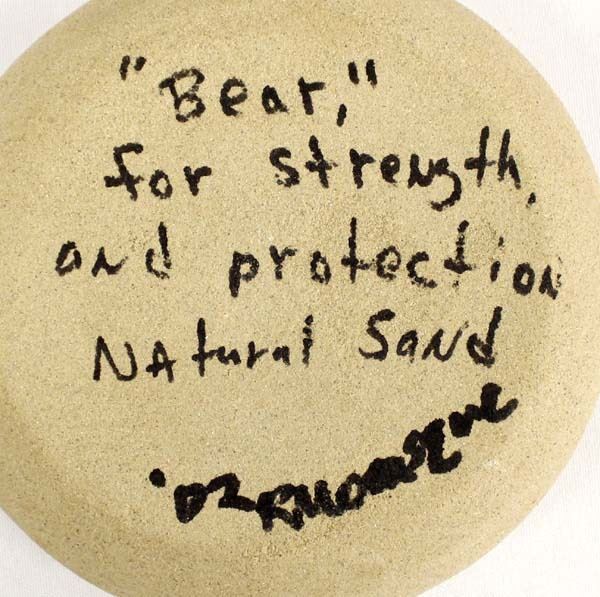 "Bear,"
for strength,
and protection
NAtural SaNd